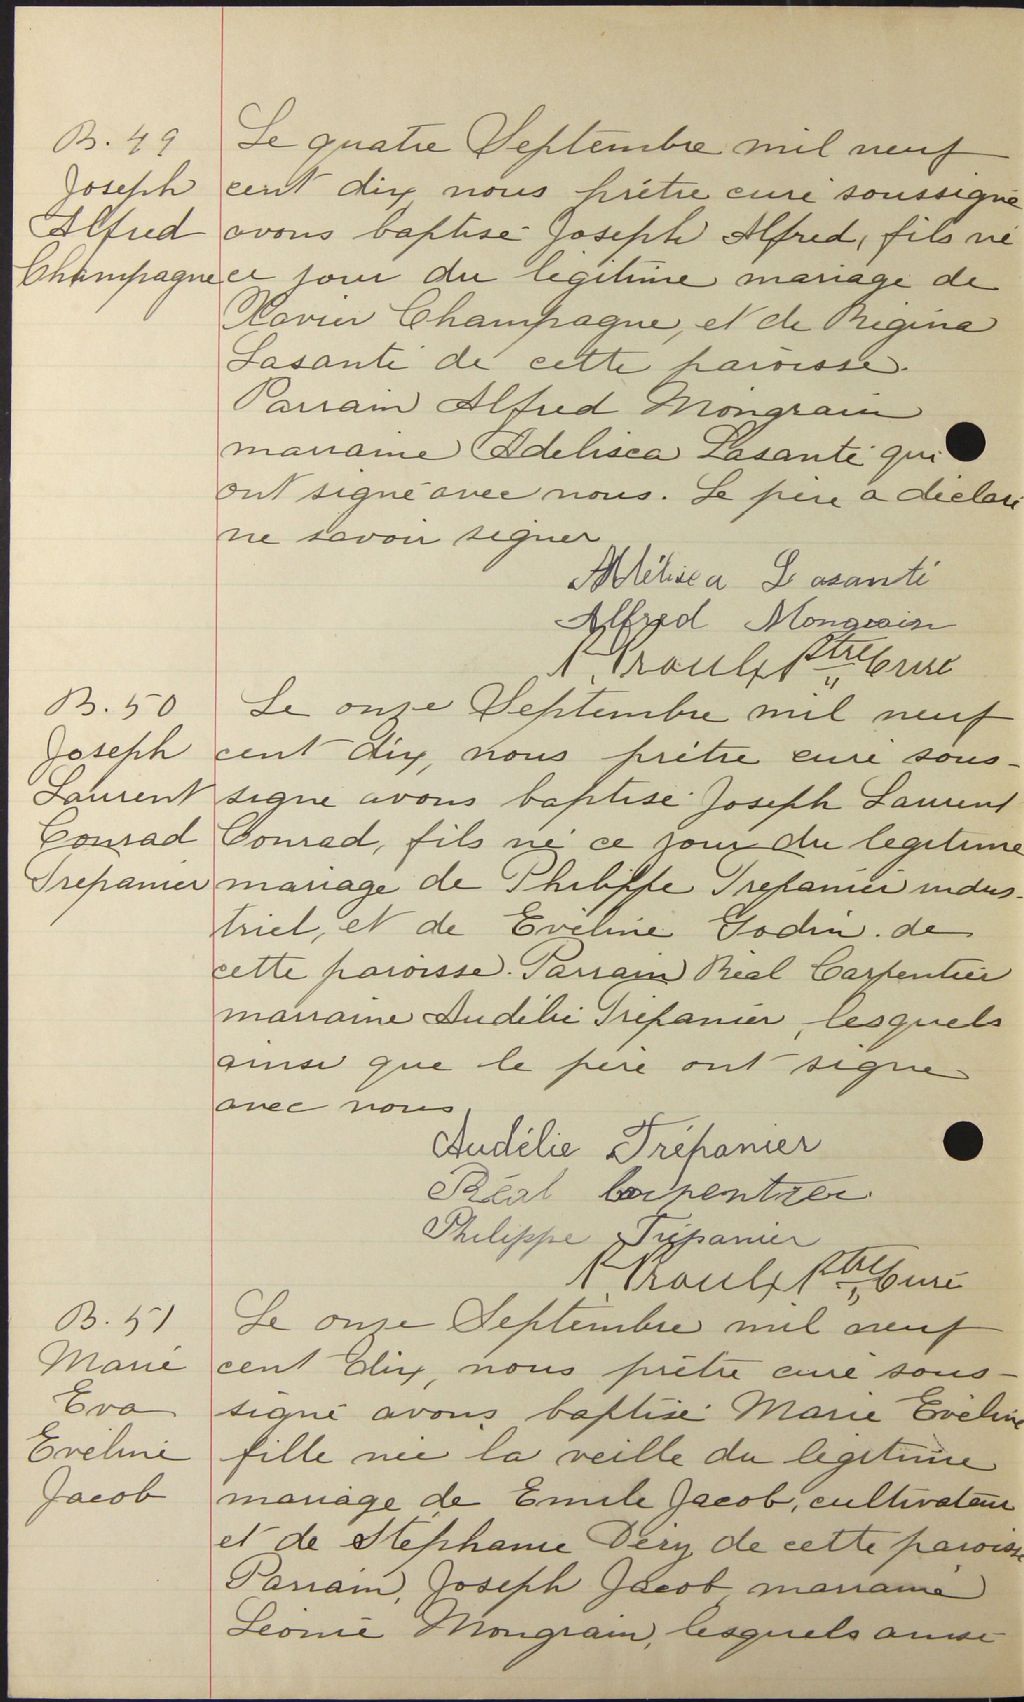 B. 49
Joseph
Alfred
Champagne
Le quatre Septembre mil neuf
cent dix, nous prêtre curé soussigné
avons baptisé Joseph Alfred, fils né
ce jour du légitime mariage de
Xavier Champagne, et de Régina
Lasanté de cette paroisse.
Parrain Alfred Mongrain
marraine Adelisca Lasanté qui
ont signé avec nous. Le père a déclaré
ne savoir signer
Lasanté
Alfred Mongrain
P. Proulx Ptre Curé
B. 50
Joseph
Laurent
Conrad
Trepanier
Le onze Septembre mil neuf
cent dix, nous prêtre curé sous-
signé avons baptisé Joseph Laurent
Conrad, fils né ce jour du legitime
mariage de Philippe Trepanier indus-
triel, et de Eveline Godin de
cette paroisse. Parrain Réal Carpentier
marraine Audélie Trépanier, lesquels
ainsi que le père ont signé
avec nous
Audélie Trépanier
Réal Carpentier
Philippe Trépanier
P. Proulx Ptre Curé
B. 51
Marie
Eva
Eveline
Jacob
Le onze Septembre mil neuf
cent dix, nous prêtre curé sous-
signé avons baptisé Marie Eveline
fille née la veille du legitime
mariage de Emile Jacob, cultivateur
et de Stéphanie Déry de cette paroisse
Parrain, Joseph Jacob, marraine
Léonie Mongrain, lesquels ainsi